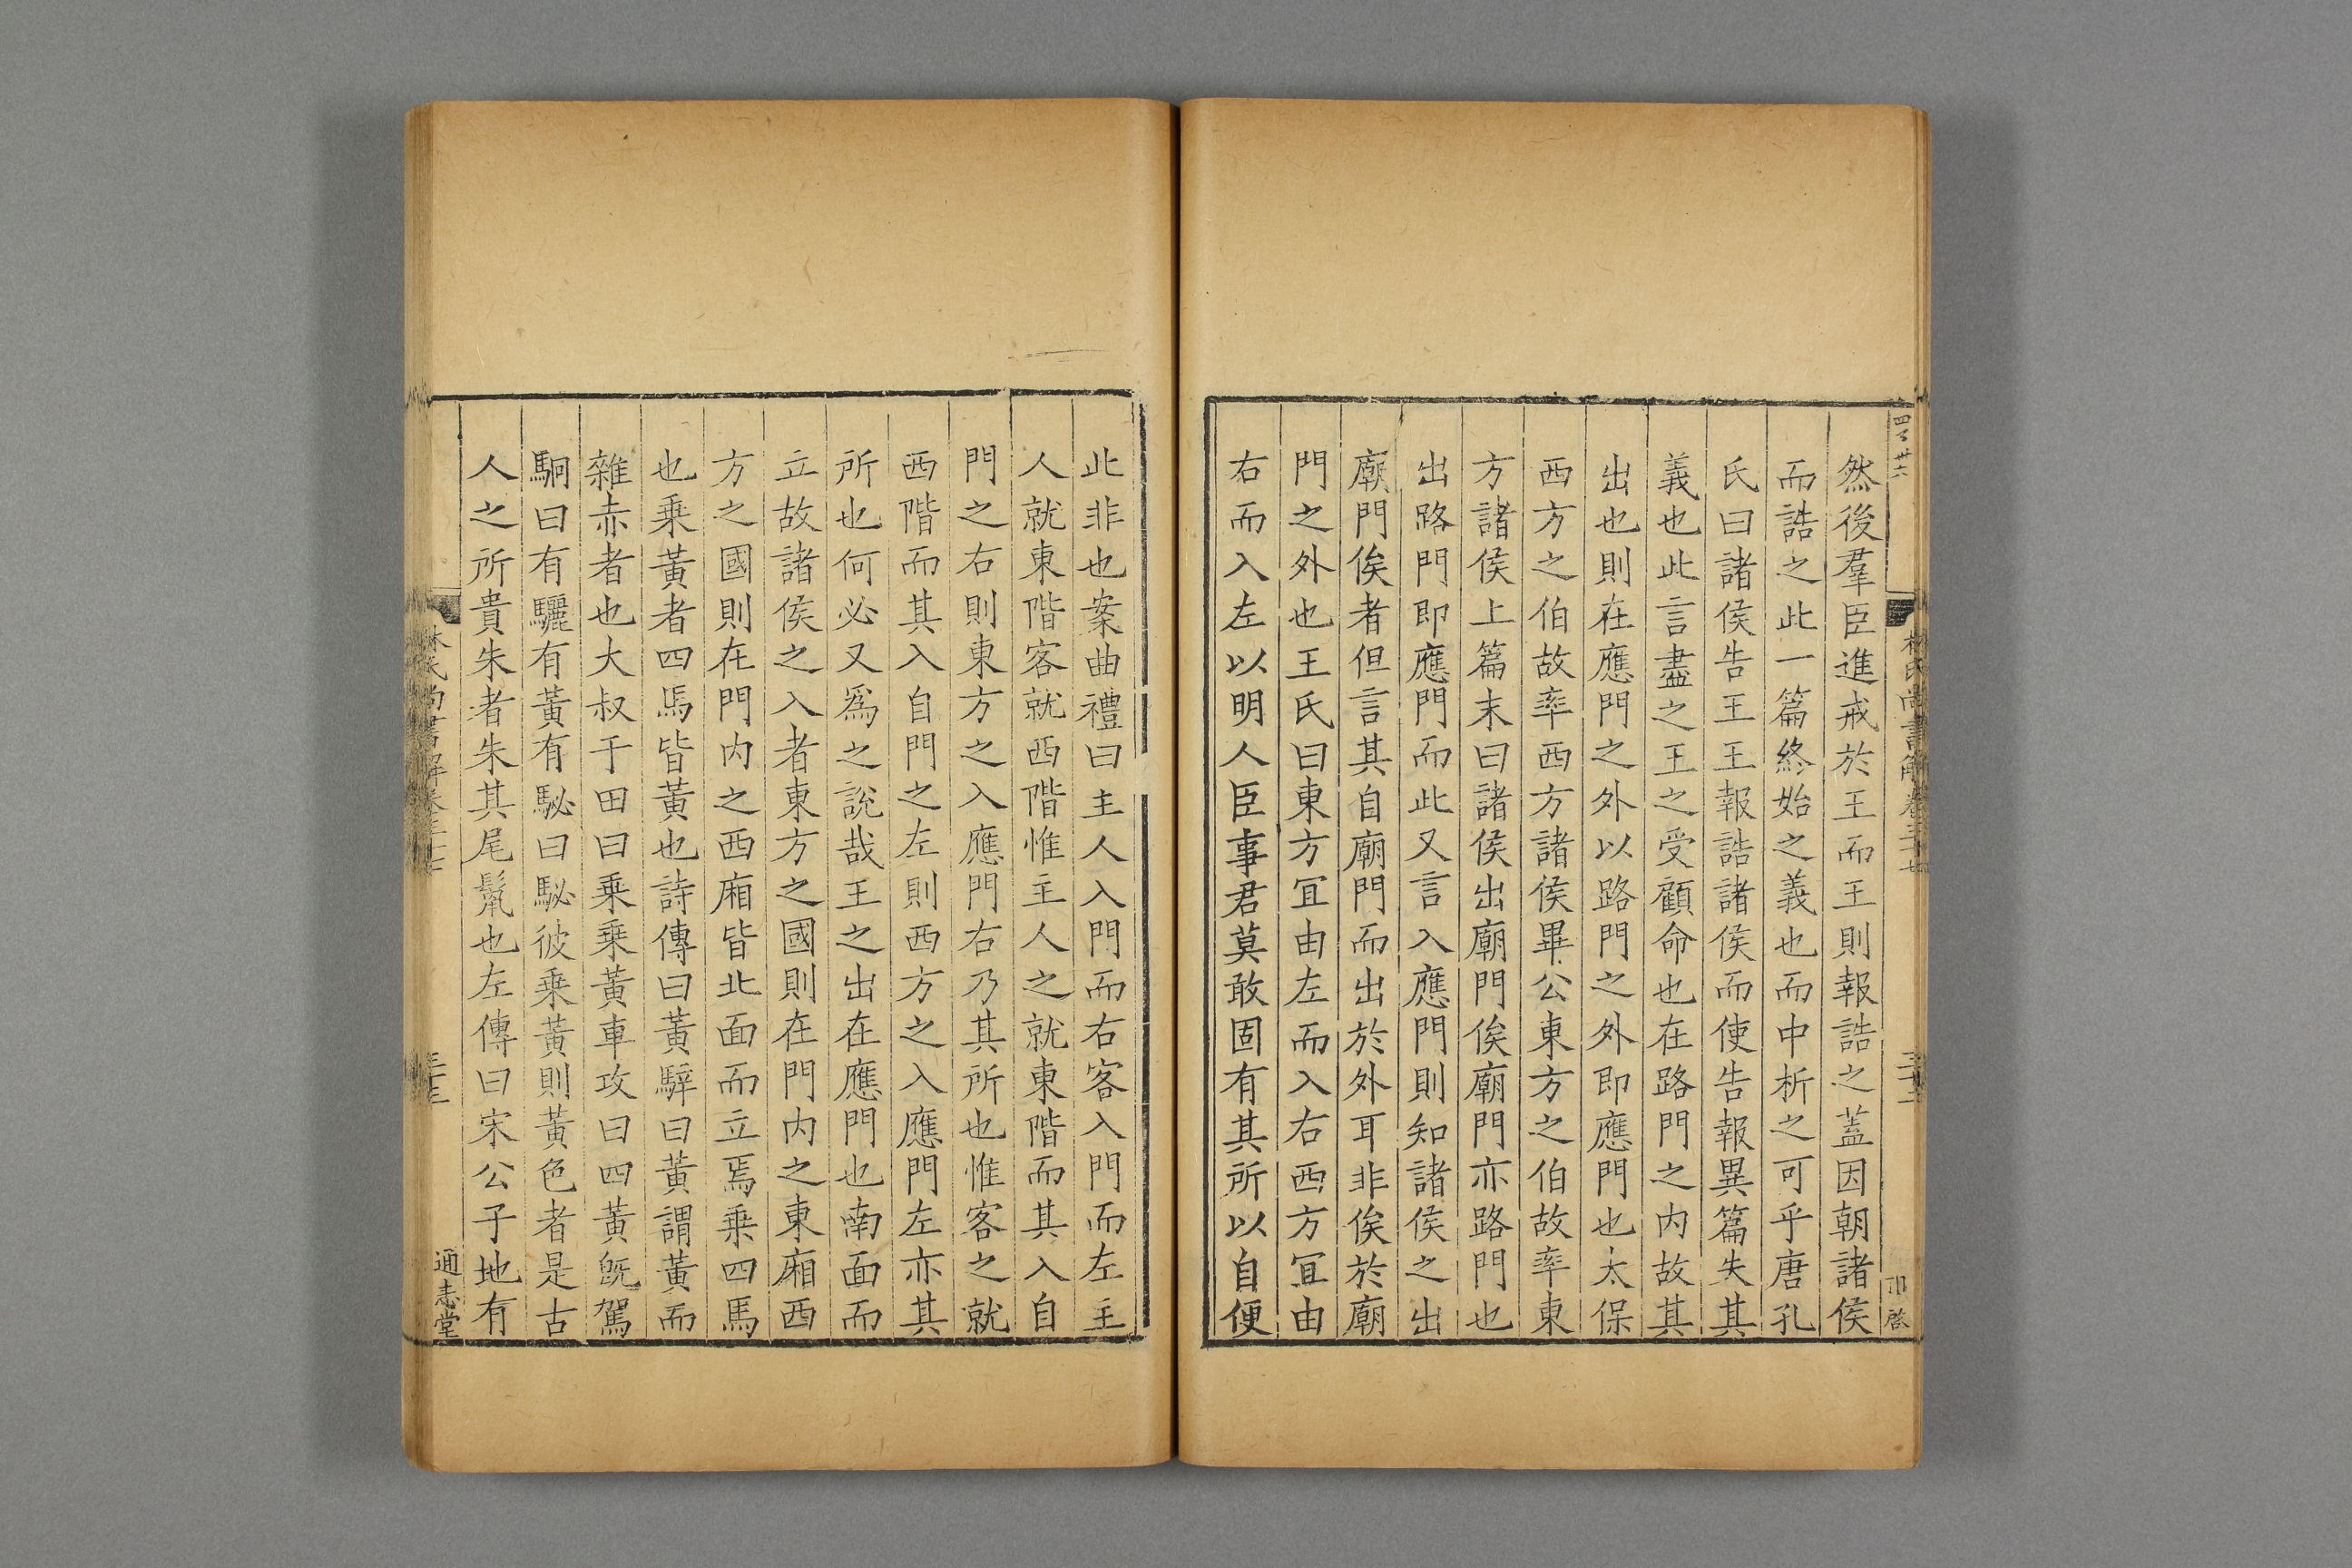 然後羣臣進戒於王而王則報誥之蓋因朝諸侯
而誥之此一篇終始之義也而中析之可乎唐孔
氏曰諸侯告王王報誥諸侯而使告報異篇失其
義也此言盡之王之受顧命也在路門之内故其
出也則在應門之外以路門之外即應門也太保
西方之伯故率西方諸侯畢公東方之伯故率東
方諸侯上篇末曰諸侯出廟門俟廟門亦路門也
出路門即應門而此又言入應門則知諸侯之出
廟門俟者但言其自廟門而出於外耳非俟於廟
門之外也王氏曰東方冝由左而入右西方冝由
右而入左以明人臣事君莫敢固有其所以自便
此非也案曲禮曰主人入門而右客入門而左主
人就東階客就西階惟主人之就東階而其入自
門之右則東方之入應門右乃其所也惟客之就
西階而其入自門之左則西方之入應門左亦其
所也何必又爲之說哉王之出在應門也南面而
立故諸侯之入者東方之國則在門内之東廂西
方之國則在門内之西廂皆北面而立焉乗四馬
也乗黃者四馬皆黃也詩傳曰黃騂曰黃謂黃而
雜赤者也大叔于田曰乗乗黃車攻曰四黃旣駕
駉曰有驪有黃有駜曰駜彼乗黃則黃色者是古
人之所貴朱者朱其尾鬣也左傳曰宋公子地有
林氏尚書解卷三十七
通志堂